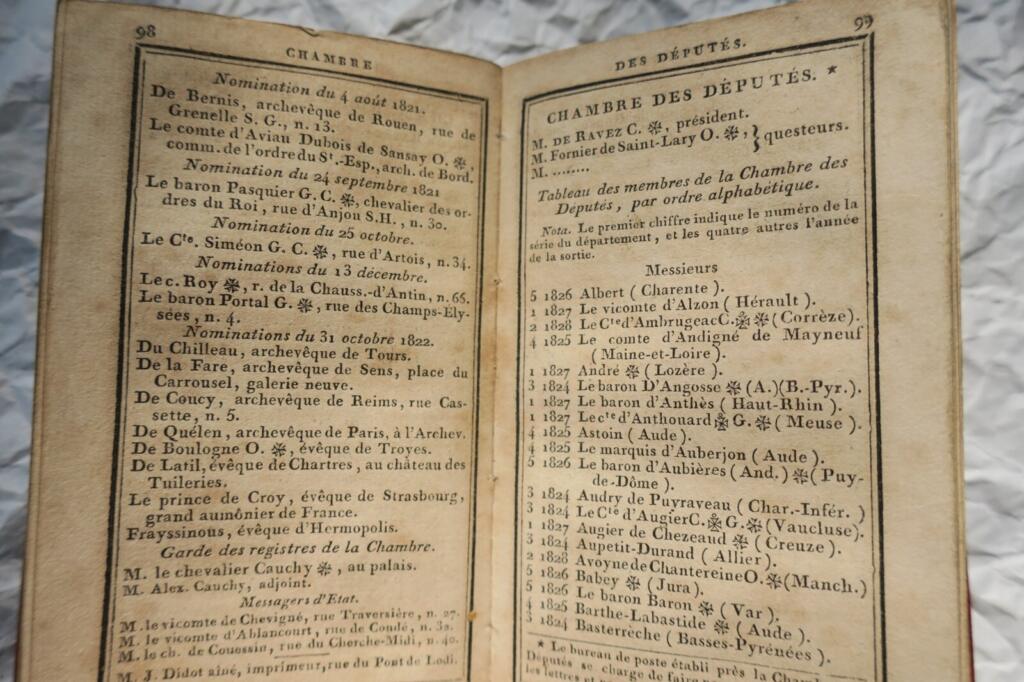 98
CHAMBRE
Nomination du 4 août 1821.
De Bernis, archevêque de Rouen, rue de
Grenelle S. G., n. 13.
Le comte d'Aviau Dubois de Sansay O. ❉,
comm. de l'ordre du St.-Esp., arch. de Bord.
Nomination du 24 septembre 1821
Le baron Pasquier G. C. ❉, chevalier des or-
dres du Roi, rue d'Anjou S.H., n. 30.
Nomination du 25 octobre.
Le Cte. Siméon G. C. ❉, rue d'Artois, n. 34.
Nominations du 13 décembre.
Le c. Roy ❉, r. de la Chauss.-d'Antin, n. 66.
Le baron Portal G. ❉, rue des Champs-Ély-
sées, n. 4.
Nominations du 31 octobre 1822.
Du Chilleau, archevêque de Tours.
De la Fare, archevêque de Sens, place du
Carrousel, galerie neuve.
De Coucy, archevêque de Reims, rue Cas-
sette, n. 5.
De Quélen, archevêque de Paris, à l'Archev.
De Boulogne O. ❉, évêque de Troyes.
De Latil, évêque de Chartres, au château des
Tuileries.
Le prince de Croy, évêque de Strasbourg,
grand aumônier de France.
Frayssinous, évêque d'Hermopolis.
Garde des registres de la Chambre.
M. le chevalier Cauchy ❉, au palais.
M. Alex. Cauchy, adjoint.
Messagers d'Etat.
M. le vicomte de Chevigné, rue Traversière, n. 27.
M. le vicomte d'Ablancourt, rue de Condé, n. 30.
M. le ch. de Couessin, rue du Cherche-Midi, n. 40.
M. J. Didot aîné, imprimeur, rue du Pont de Lodi.
99
DES DÉPUTÉS.
CHAMBRE DES DÉPUTÉS. *
M. DE RAVEZ C. ❉, président.
M. Fornier de Saint-Lary O. ❉, } questeurs.
M. ........
Tableau des membres de la Chambre des
Députés, par ordre alphabétique.
Nota. Le premier chiffre indique le numéro de la
série du département, et les quatre autres l'année
de la sortie.
Messieurs
5 1826 Albert ( Charente ).
1 1827 Le vicomte d'Alzon ( Hérault ).
2 1828 Le Cte d'Ambrugeac C. ❉ ❉ ( Corrèze ).
4 1825 Le comte d'Andigné de Mayneuf
( Maine-et-Loire ).
1 1827 André ❉ ( Lozère ).
3 1824 Le baron D'Angosse ❉ (A.) (B.-Pyr.).
1 1827 Le baron d'Anthès ( Haut-Rhin ).
1 1827 Le cte d'Anthouard ❉ G. ❉ ( Meuse ).
4 1825 Astoin ( Aude ).
4 1825 Le marquis d'Auberjon ( Aude ).
5 1826 Le baron d'Aubières ( And. ) ❉ ( Puy-
de-Dôme ).
3 1824 Audry de Puyraveau ( Char.-Infér. )
3 1824 Le Cte d'Augier C. ❉ G. ❉ ( Vaucluse ).
1 1827 Augier de Chezeaud ❉ ( Creuze ).
3 1824 Aupetit-Durand ( Allier ).
2 1828 Avoyne de Chantereine O. ❉ ( Manch. )
5 1826 Babey ❉ ( Jura ).
5 1826 Le baron Baron ❉ ( Var ).
4 1825 Barthe-Labastide ❉ ( Aude ).
3 1824 Basterrèche ( Basses-Pyrénées ).
* Le bureau de poste établi près la
Députés se charge de faire
les lettres et